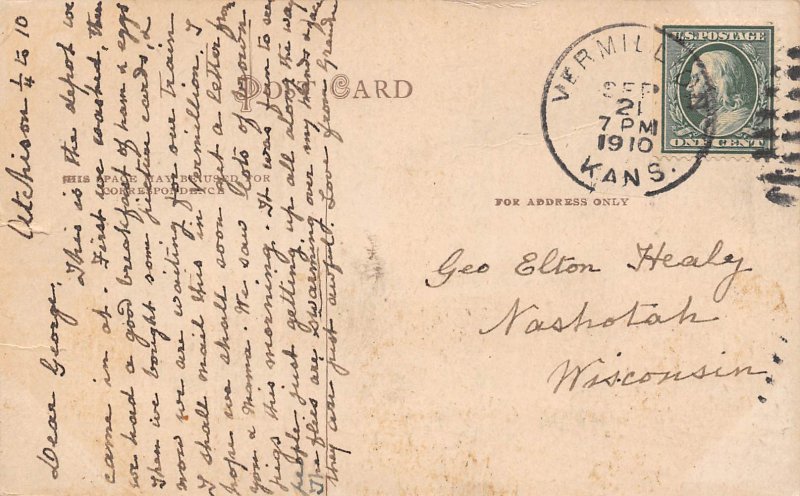 POST CARD
THIS SPACE MAY BE USED FOR
CORRESPONDENCE
FOR ADDRESS ONLY
VERMILLION
SEP
21
7 PM
1910
KANS.
U.S. POSTAGE
ONE CENT
Atchison ¼ to 10
Dear George,
This is the depot we
came in at. First we washed, then
we had a good breakfast of ham & eggs
Then we bought some picture cards, &
now we are waiting for our train
I shall mail this in Vermillion. I
hope we shall soon get a letter from
you & Mama. We saw lots of brown
pigs this morning. It was fun to see
people just getting up all along the way
The flies are swarming over my hands & face
they are just awful. Love from Grandma
Geo Elton Healy
Nashotah
Wisconsin